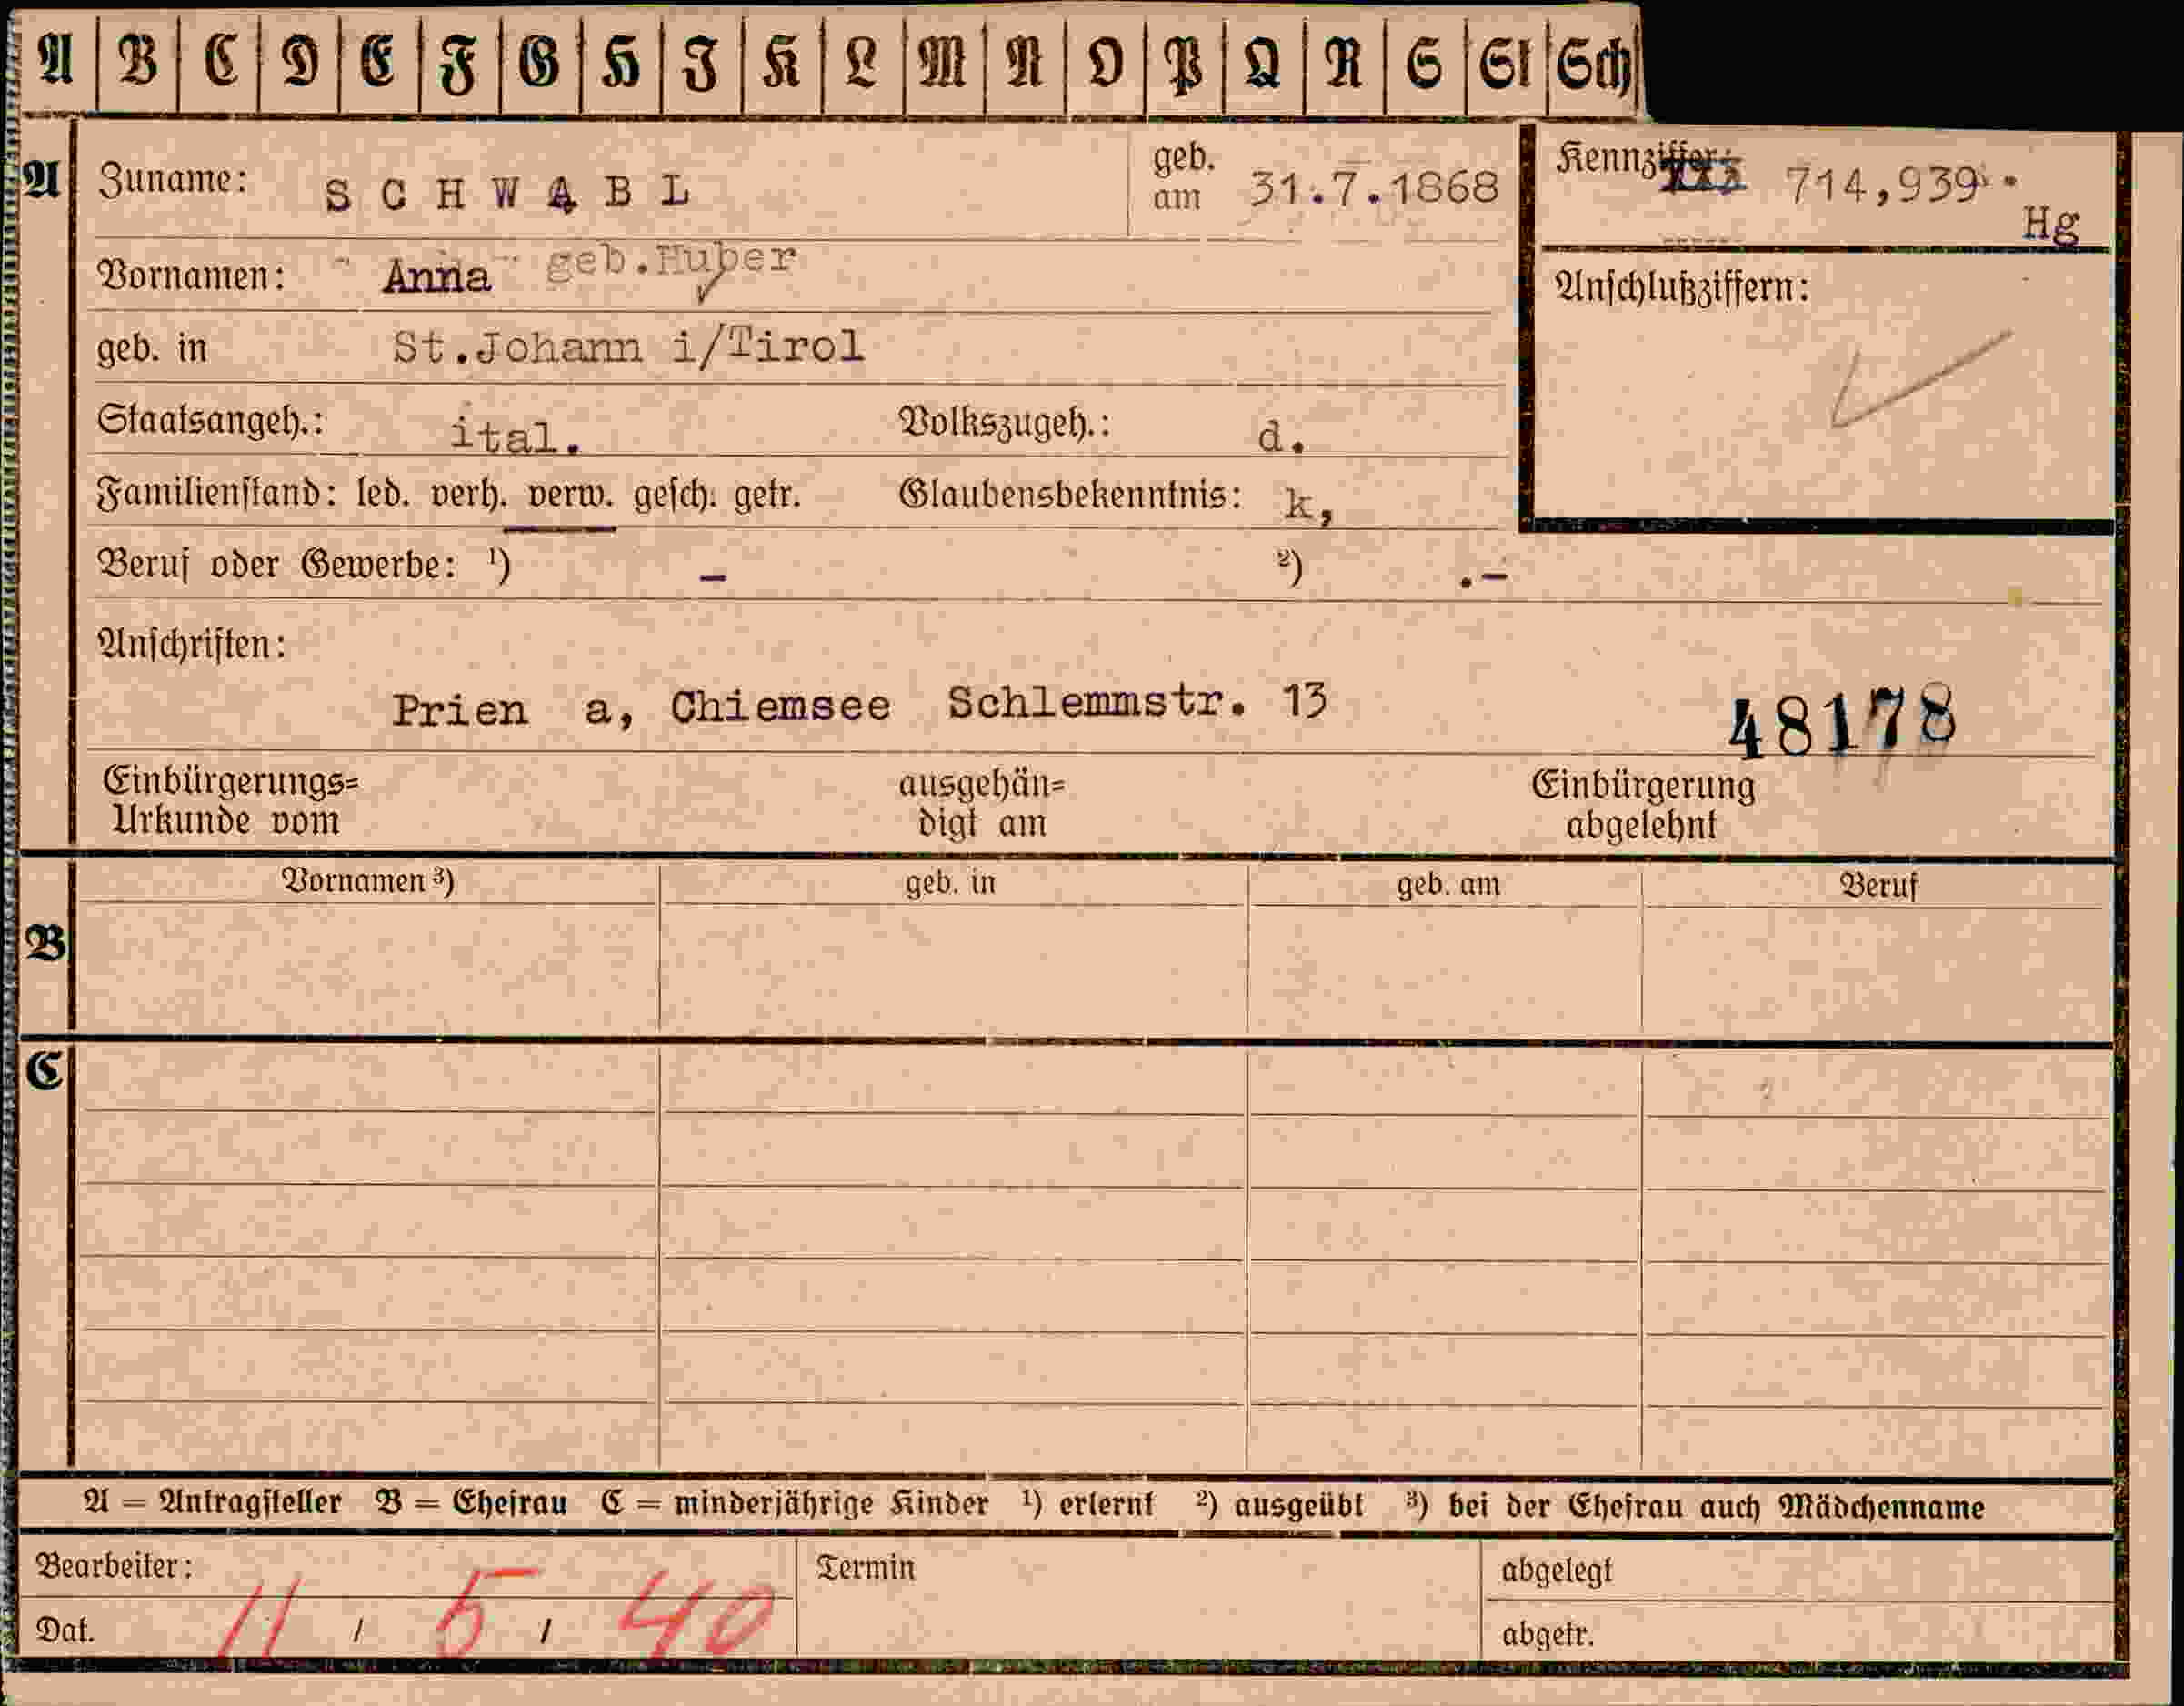 A B C D E F G H I K L M N O P Q R S St Sch
A Zuname: SCHWABL geb. am 31.7.1868 Kennziffer: 714,939. Hg
Vornamen: " Anna " geb.Huber Anschlußziffern:
geb. in St.Johann i/Tirol
Staatsangeh.: ital. Volkszugeh.: d.
Familienstand: led. verh. verw. gesch. getr. Glaubensbekenntnis: k,
Beruf oder Gewerbe: ¹) - ²) .-
Anschriften:
Prien a, Chiemsee Schlemmstr. 13 48178
Einbürgerungs= Urkunde vom ausgehän= digt am Einbürgerung abgelehnt
B Vornamen ³) geb. in geb. am Beruf
C
A = Antragsteller B = Ehefrau C = minderjährige Kinder ¹) erlernt ²) ausgeübt ³) bei der Ehefrau auch Mädchenname
Bearbeiter: Termin abgelegt
Dat. 11 / 5 / 40 abgetr.